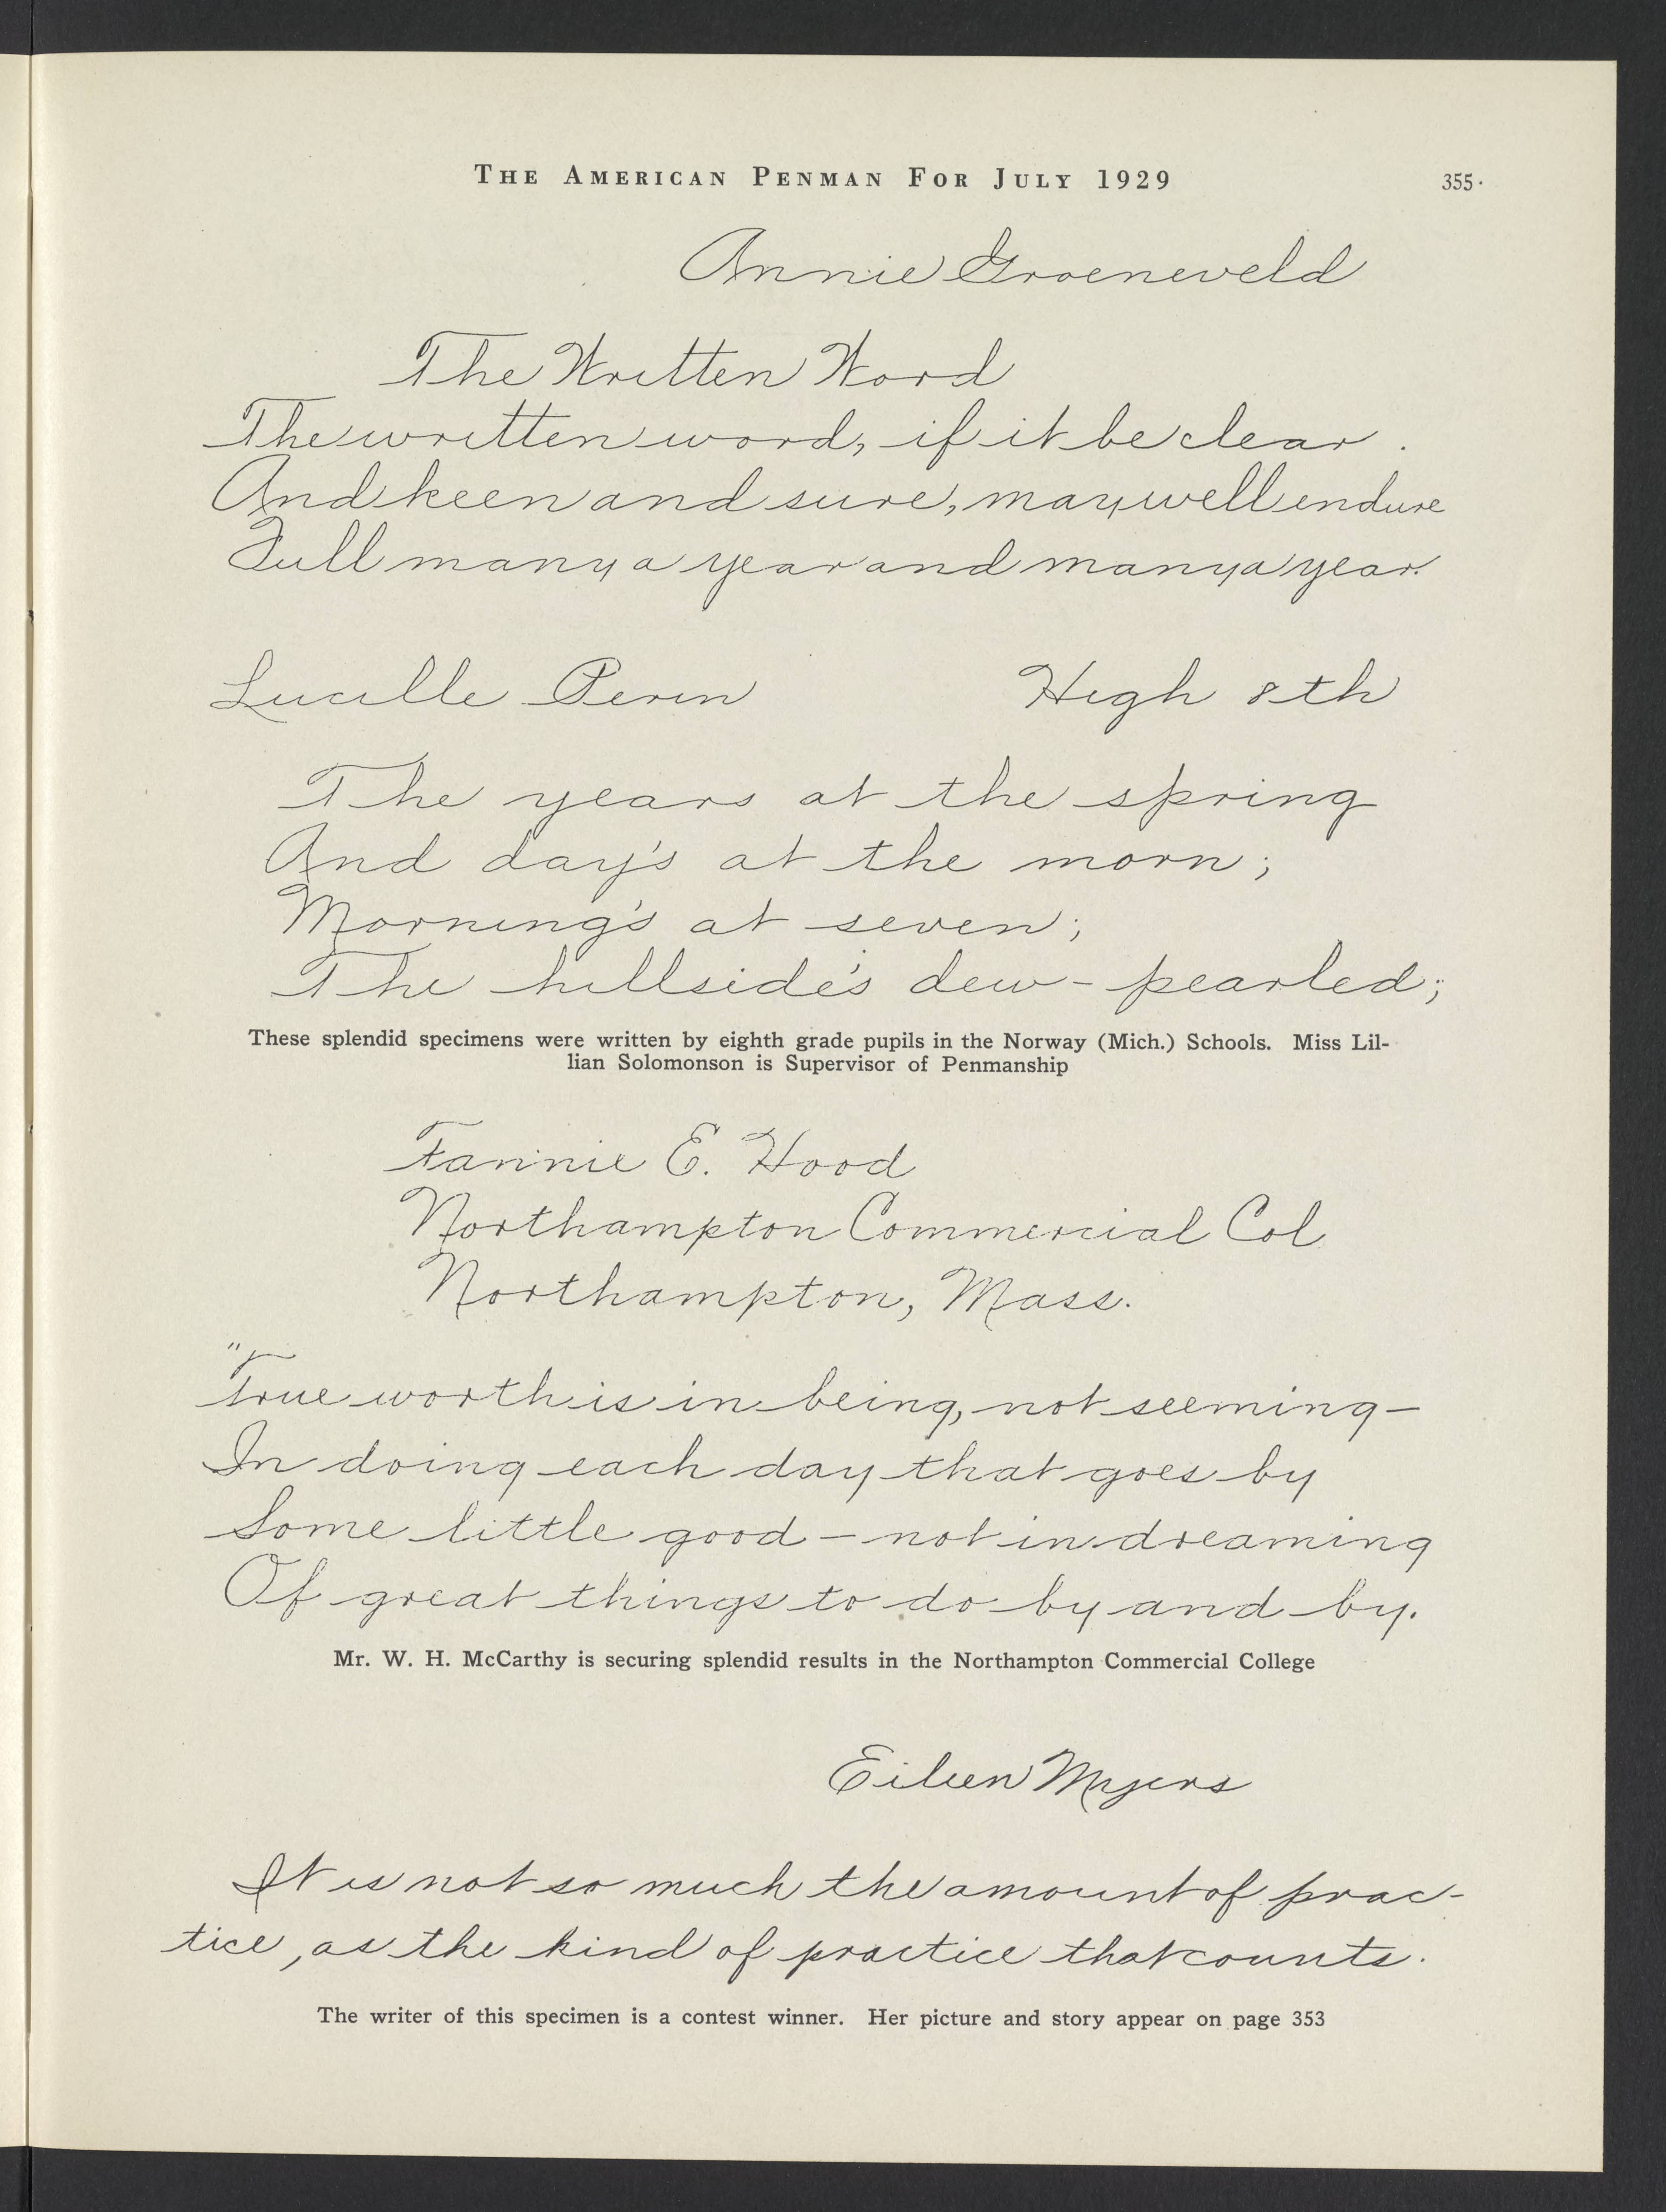 THE AMERICAN PENMAN FOR JULY 1929 355
Annie Groeneveld
The Written Word
The written word, if it be clear
And keen and sure, may well endure
Full many a year and many a year.
Lucille Perin High 8th
The years at the spring
And day's at the morn;
Morning's at seven;
The hillside's dew-pearled;
These splendid specimens were written by eighth grade pupils in the Norway (Mich.) Schools. Miss Lil-
lian Solomonson is Supervisor of Penmanship
Fannie E. Hood
Northampton Commercial Col
Northampton, Mass.
"True worth is in being, not seeming—
In doing each day that goes by
Some little good — not in dreaming
Of great things to do by and by.
Mr. W. H. McCarthy is securing splendid results in the Northampton Commercial College
Eileen Myers
It is not so much the amount of prac-
tice, as the kind of practice that counts.
The writer of this specimen is a contest winner. Her picture and story appear on page 353